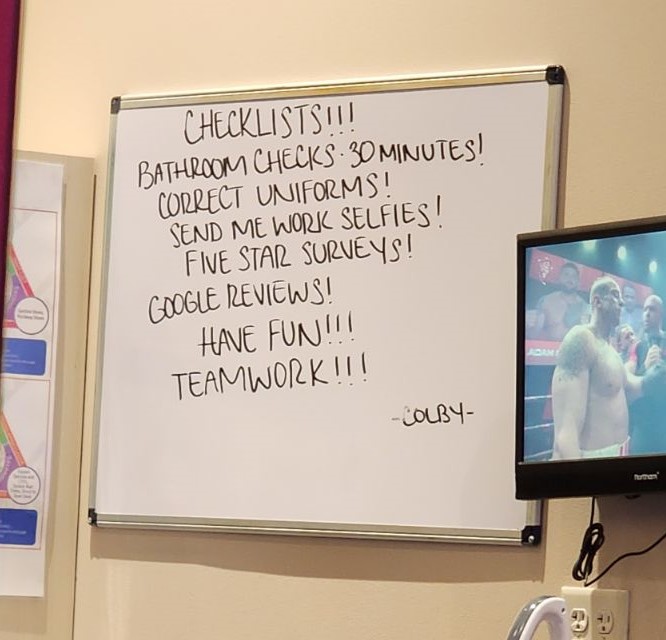 CHECKLISTS!!!
BATHROOM CHECKS·30 MINUTES!
CORRECT UNIFORMS!
SEND ME WORK SELFIES!
FIVE STAR SURVEYS!
GOOGLE REVIEWS!
HAVE FUN!!!
TEAMWORK!!!
-COLBY-
ADAM